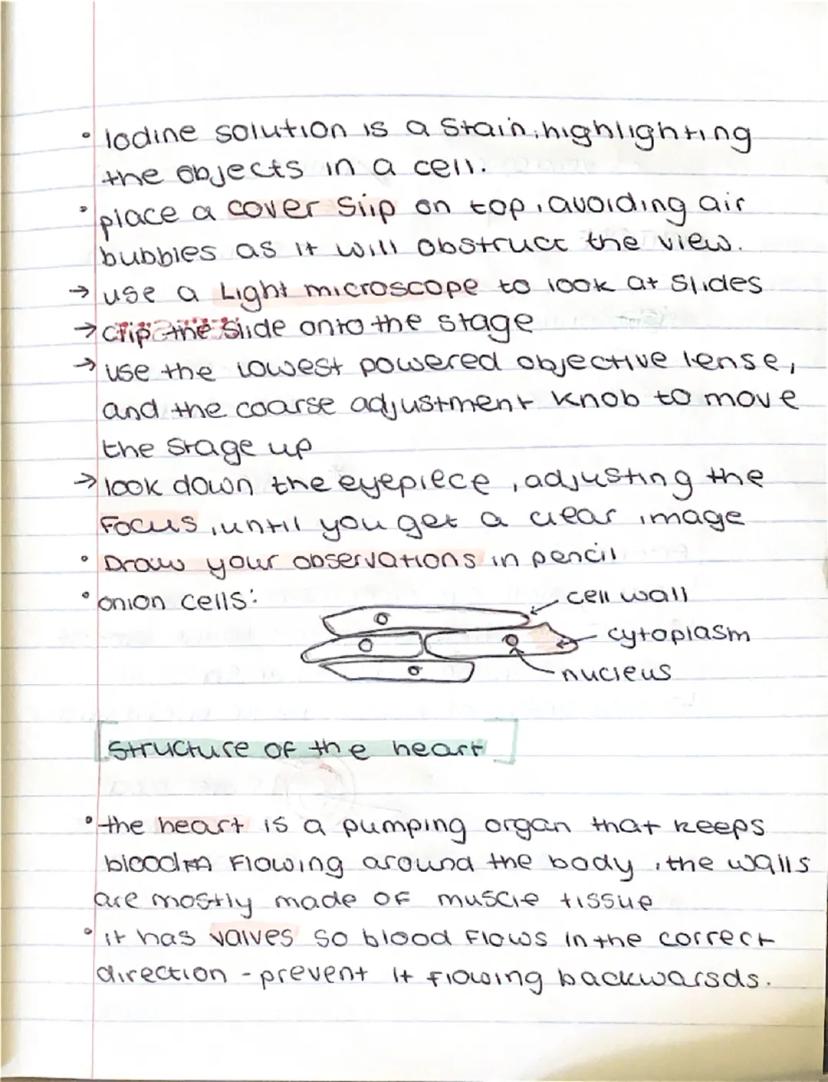 • Iodine solution is a stain, highlighting
the objects in a cell.
• place a cover slip on top, avoiding air
bubbles as it will obstruct the view.
→ use a Light microscope to look at slides
→ clip the slide onto the stage
→ use the lowest powered objective lense,
and the coarse adjustment knob to move
the stage up
→ look down the eyepiece, adjusting the
focus, until you get a clear image
• Draw your observations in pencil
• onion cells:
cell wall
cytoplasm
nucleus
[structure of the heart]
• the heart is a pumping organ that keeps
blood flowing around the body, the walls
are mostly made of muscle tissue
• it has valves so blood flows in the correct
direction - prevent it flowing backwarsds.